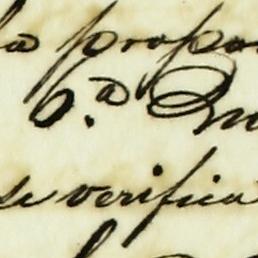 la propo
6.a Qu
se verifica